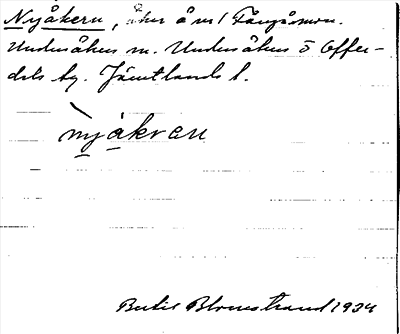 Nyåkern, åker å nr 1 Fångåmon.
Undersåkers sn. Undersåkers o Offer-
dals tg. Jämtlands l.
nyåkṛen
Bertil Blomstrand 1934